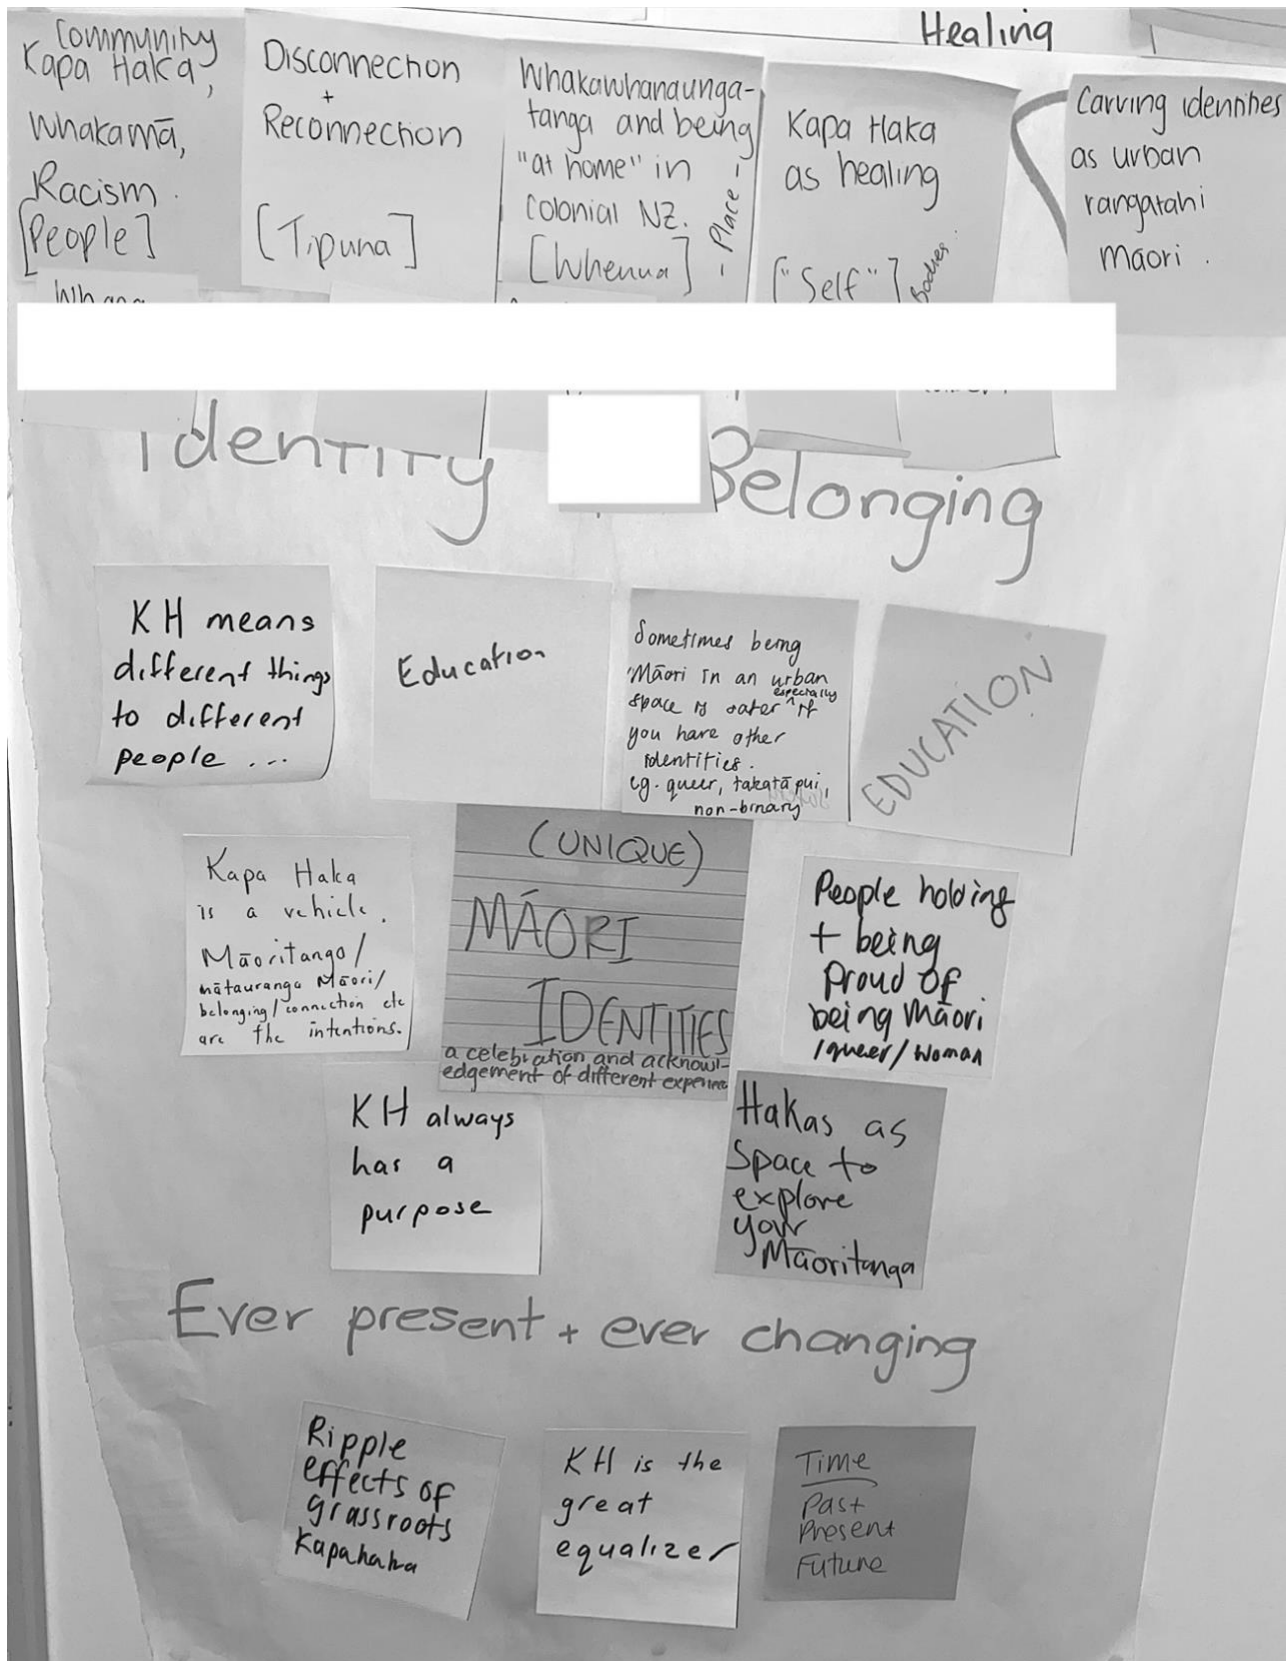 Healing
Community
Kapa Haka,
Whakamā,
Racism.
[People]
Disconnection
+
Reconnection
[Tipuna]
Whakawhanaunga-
tanga and being
"at home" in
colonial NZ.
[Whenua]
- Place -
Kapa Haka
as healing
["Self"]
Bodies.
Carving identities
as urban
rangatahi
māori.
Whana
Identity
Belonging
KH means
different things
to different
people ...
Education
Sometimes being
Māori in an urban
especially
space is safer ^ if
you have other
identities.
eg. queer, takatāpui,
non-binary
EDUCATION
Kapa Haka
is a vehicle.
Māoritanga/
mātauranga Māori/
belonging/connection etc
are the intentions.
(UNIQUE)
MĀORI
IDENTITIES
a celebration and acknowl-
edgement of different experience
People holding
+ being
Proud of
being Māori
/queer/woman
KH always
has a
purpose
Hakas as
Space to
explore
your
Māoritanga
Ever present + ever changing
Ripple
effects of
grassroots
Kapahaka
KH is the
great
equalizer
Time
Past
Present
Future